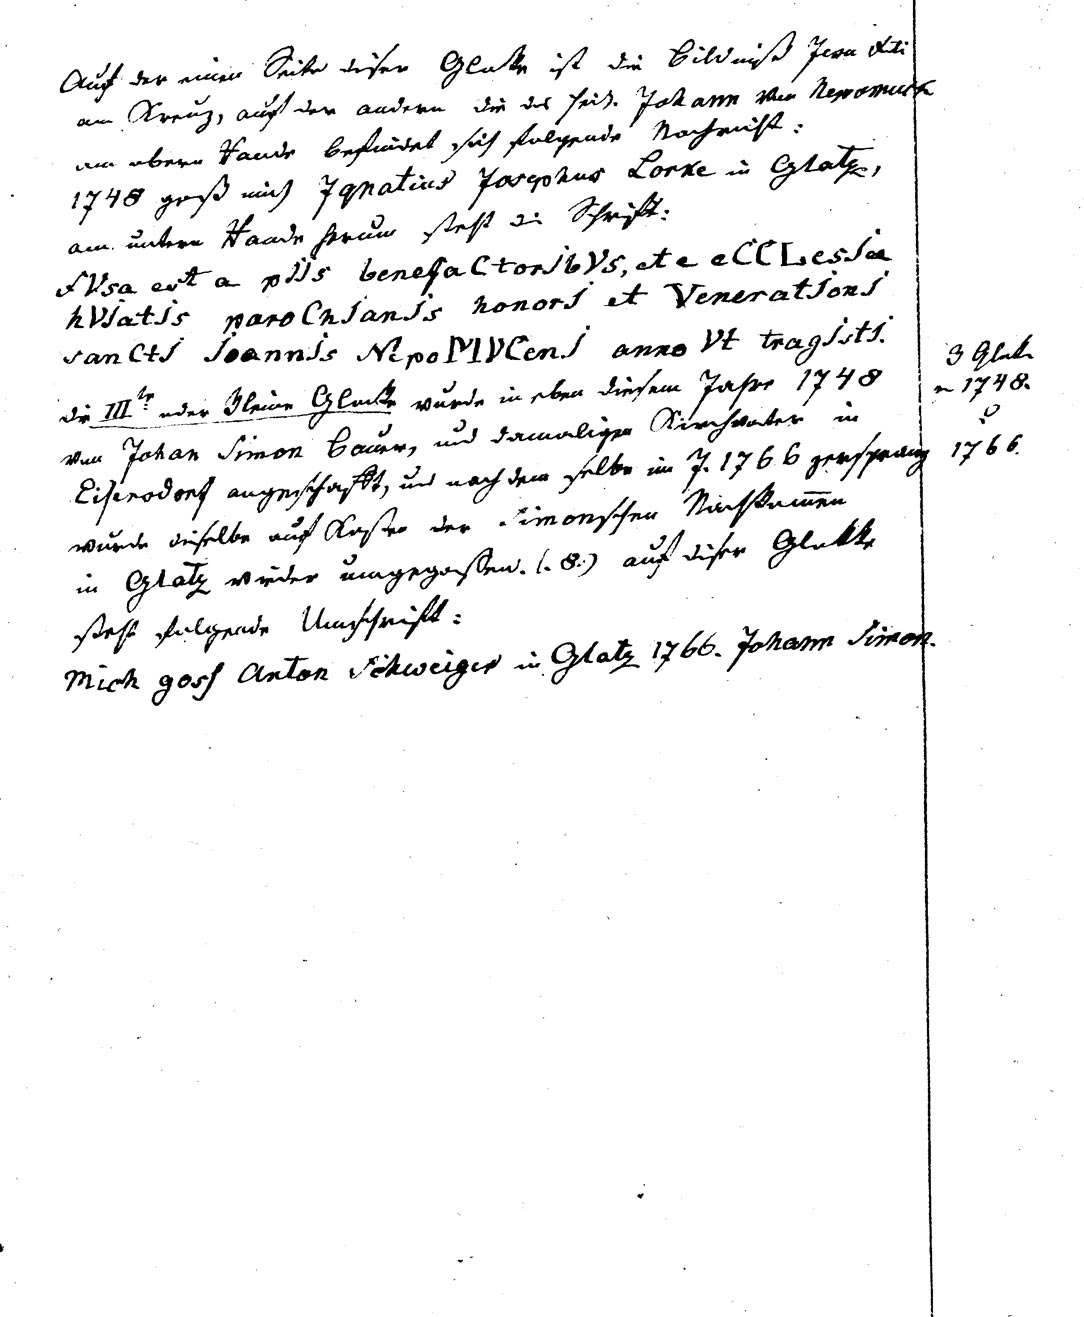 Auf der einen Seite dieser Glokke ist die Bildniß Jesu Xti
am Kreuz, auf der andern die des heil. Johann von Nepomuck
am obern Rande befindet sich folgende Nachricht:
1748 goß mich Ignatius Josephus Lorke in Glatz,
am untern Rande herum steht die Schrift:
fVsa est a pIIs benefaCtorIbVs, et e eCCLesIae
hVIatIs paroChIanIs honorI et VeneratIonI
sanCtI IoannIs NepoMVCenI anno Vt tragIstI.
die IIIte oder kleine Glocke wurde in eben diesem Jahre 1748
von Johan Simon Bauer, und damaligen Kirchvater in
Eisersdorf angeschafft, und nach dem selbe im J. 1766 zersprang
wurde dieselbe auf Kosten der Simonschen Nachkom̅en
in Glatz wieder umgegossen. (. 8.) auf dieser Glokke
steht folgende Umschrift:
Mich goss Anton Schweiger in Glatz 1766. Johann Simon.
3 Glok
1748.
u
1766.